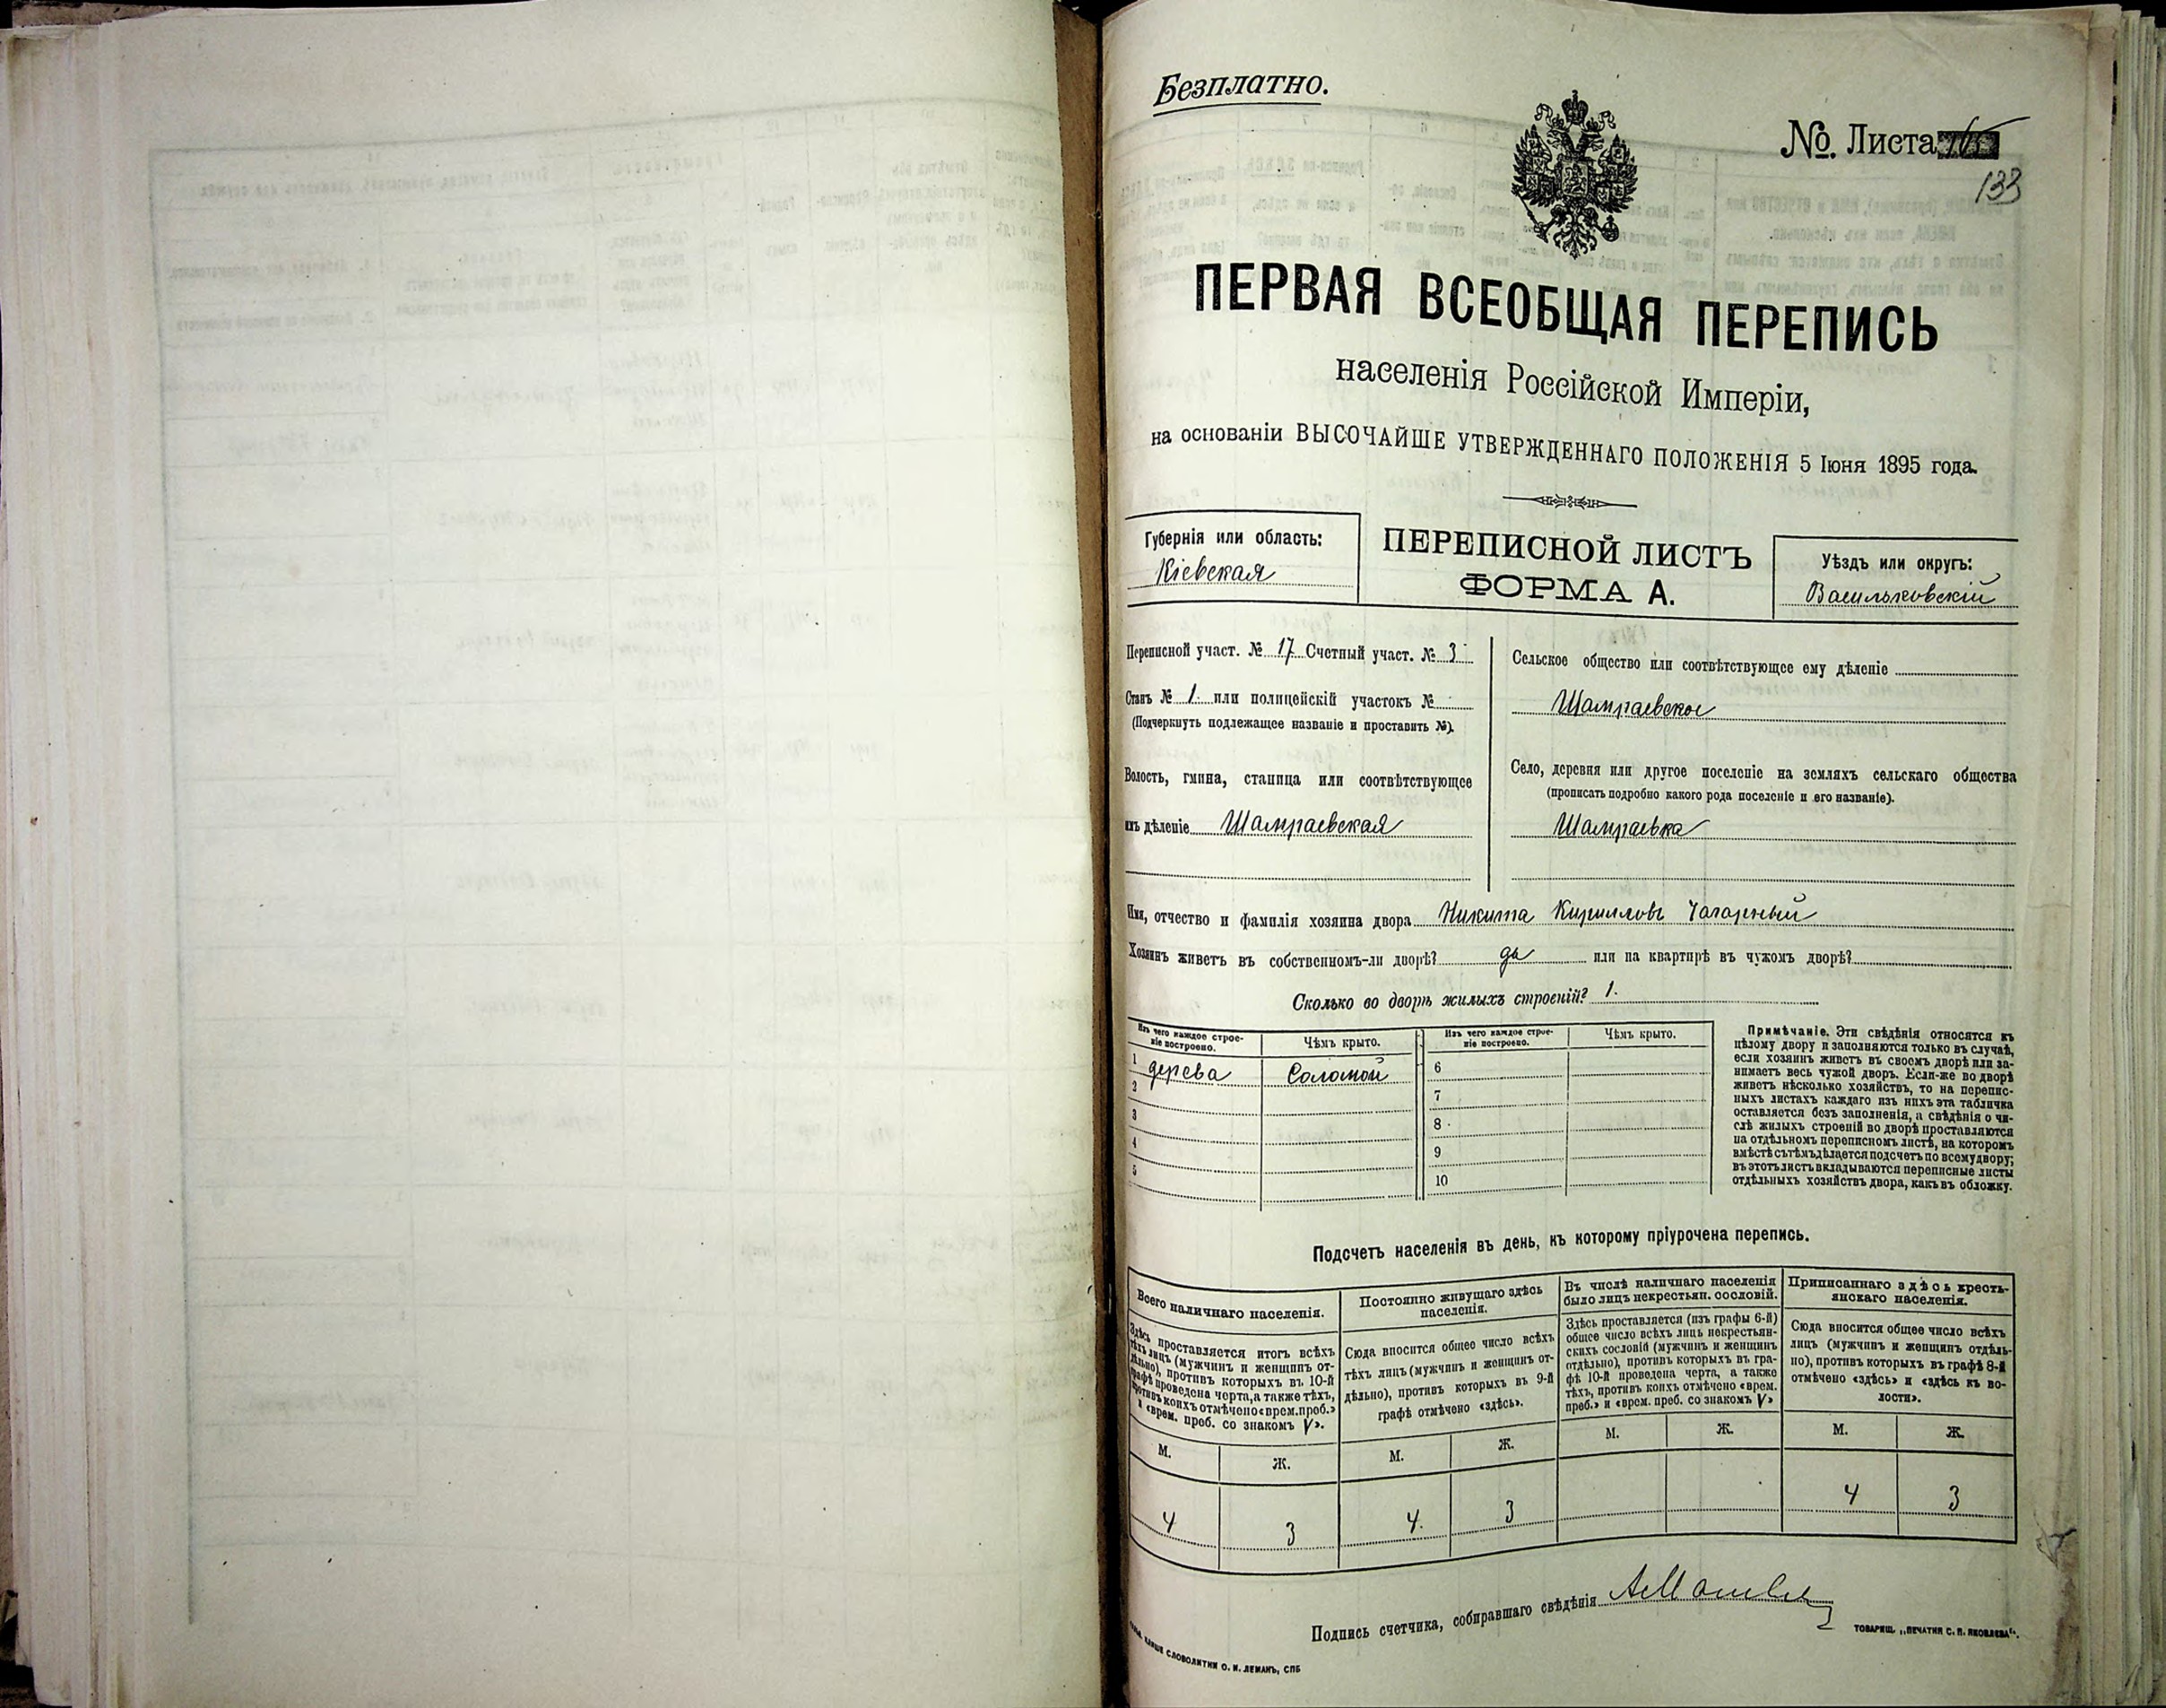 Безплатно.
№. Листа
133
ПЕРВАЯ ВСЕОБЩАЯ ПЕРЕПИСЬ
населенія Россійской Имперіи,
на основаніи ВЫСОЧАЙШЕ УТВЕРЖДЕННАГО ПОЛОЖЕНІЯ 5 Іюня 1895 года.
Губернія или область:
Кіевская
ПЕРЕПИСНОЙ ЛИСТЪ
ФОРМА А.
Уѣздъ или округъ:
Васильковскій
Переписной участ. № 17 Счетный участ. № 3
Станъ № 1. или полицейскій участокъ №
(Подчеркнуть подлежащее названіе и проставить №).
Волость, гмина, станица или соотвѣтствующее
имъ дѣленіе Шамраевская
Сельское общество или соотвѣтствующее ему дѣленіе
Шамраевское
Село, деревня или другое поселеніе на земляхъ сельскаго общества
(прописать подробно какого рода поселеніе и его названіе).
Шамраевка
Имя, отчество и фамилія хозяина двора Никита Кирилловъ Чагарный
Хозяинъ живетъ въ собственномъ-ли дворѣ? да или на квартирѣ въ чужомъ дворѣ?
Сколько во дворѣ жилыхъ строеній? 1.
Изъ чего каждое строе-
ніе построено.
Чѣмъ крыто.
Изъ чего каждое строе-
ніе построено.
Чѣмъ крыто.
1 дерева Соломой 6
2 7
3 8
4 9
5 10
Примѣчаніе. Эти свѣдѣнія относятся къ
цѣлому двору и заполняются только въ случаѣ,
если хозяинъ живетъ въ своемъ дворѣ или за-
нимаетъ весь чужой дворъ. Если-же во дворѣ
живетъ нѣсколько хозяйствъ, то на перепис-
ныхъ листахъ каждаго изъ нихъ эта табличка
оставляется безъ заполненія, а свѣдѣнія о чи-
слѣ жилыхъ строеній во дворѣ проставляются
на отдѣльномъ переписномъ листѣ, на которомъ
вмѣстѣ съ тѣмъ дѣлается подсчетъ по всему двору;
въ этотъ листъ вкладываются переписные листы
отдѣльныхъ хозяйствъ двора, какъ въ обложку.
Подсчетъ населенія въ день, къ которому пріурочена перепись.
Всего наличнаго населенія.
Здѣсь проставляется итогъ всѣхъ
тѣхъ лицъ (мужчинъ и женщинъ от-
дѣльно), противъ которыхъ въ 10-й
графѣ проведена черта, а также тѣхъ,
противъ коихъ отмѣчено «врем. преб.»
и «врем. преб. со знакомъ V».
Постоянно живущаго здѣсь
населенія.
Сюда вносится общее число всѣхъ
тѣхъ лицъ (мужчинъ и женщинъ от-
дѣльно), противъ которыхъ въ 9-й
графѣ отмѣчено «здѣсь».
Въ числѣ наличнаго населенія
было лицъ некрестьян. сословій.
Здѣсь проставляется (изъ графы 6-й)
общее число всѣхъ лицъ некрестьян-
скихъ сословій (мужчинъ и женщинъ
отдѣльно), противъ которыхъ въ гра-
фѣ 10-й проведена черта, а также
тѣхъ, противъ коихъ отмѣчено «врем.
преб.» и «врем. преб. со знакомъ V»
Приписаннаго здѣсь кресть-
янскаго населенія.
Сюда вносится общее число всѣхъ
лицъ (мужчинъ и женщинъ отдѣль-
но), противъ которыхъ въ графѣ 8-й
отмѣчено «здѣсь» и «здѣсь къ во-
лости».
М. Ж. М. Ж. М. Ж. М. Ж.
4 3 4. 3 4 3
Подпись счетчика, собиравшаго свѣдѣнія
СЛОВОЛИТНИ О. И. ЛЕМАНЪ, СПБ
ТОВАРИЩ. „ПЕЧАТНЯ С. П. ЯКОВЛЕВА".